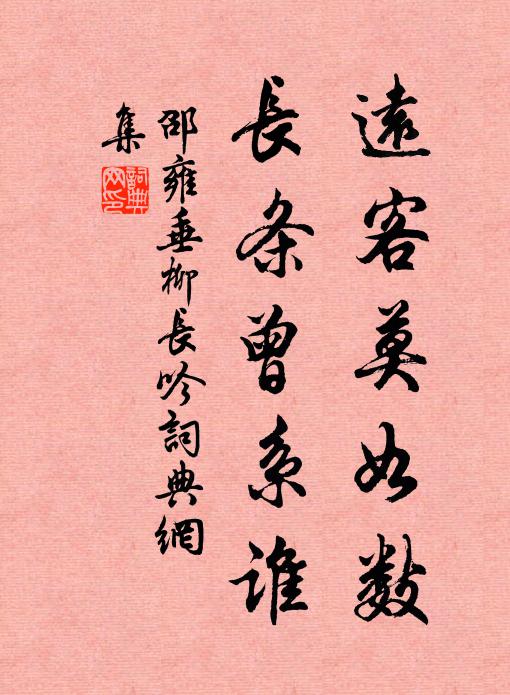 遠客莫如数
長条曾系誰
邵雍垂柳長吟詞典網
集
詞典
网印